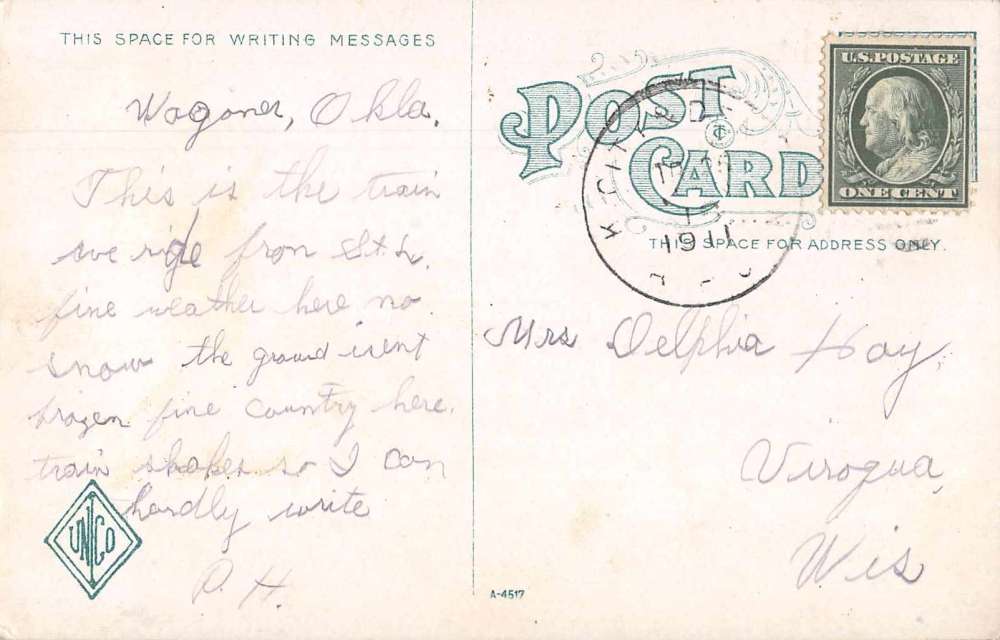 THIS SPACE FOR WRITING MESSAGES
Wagoner, Okla.
This is the train
we ride from St. L.
fine weather here no
snow the ground isent
frozen fine country here.
train shakes so I can
hardly write
P. H.
UNICO
POST CARD
U.S. POSTAGE
ONE CENT
1911
THIS SPACE FOR ADDRESS ONLY.
Mrs Delphia Hay,
Viroqua,
Wis
A-4517